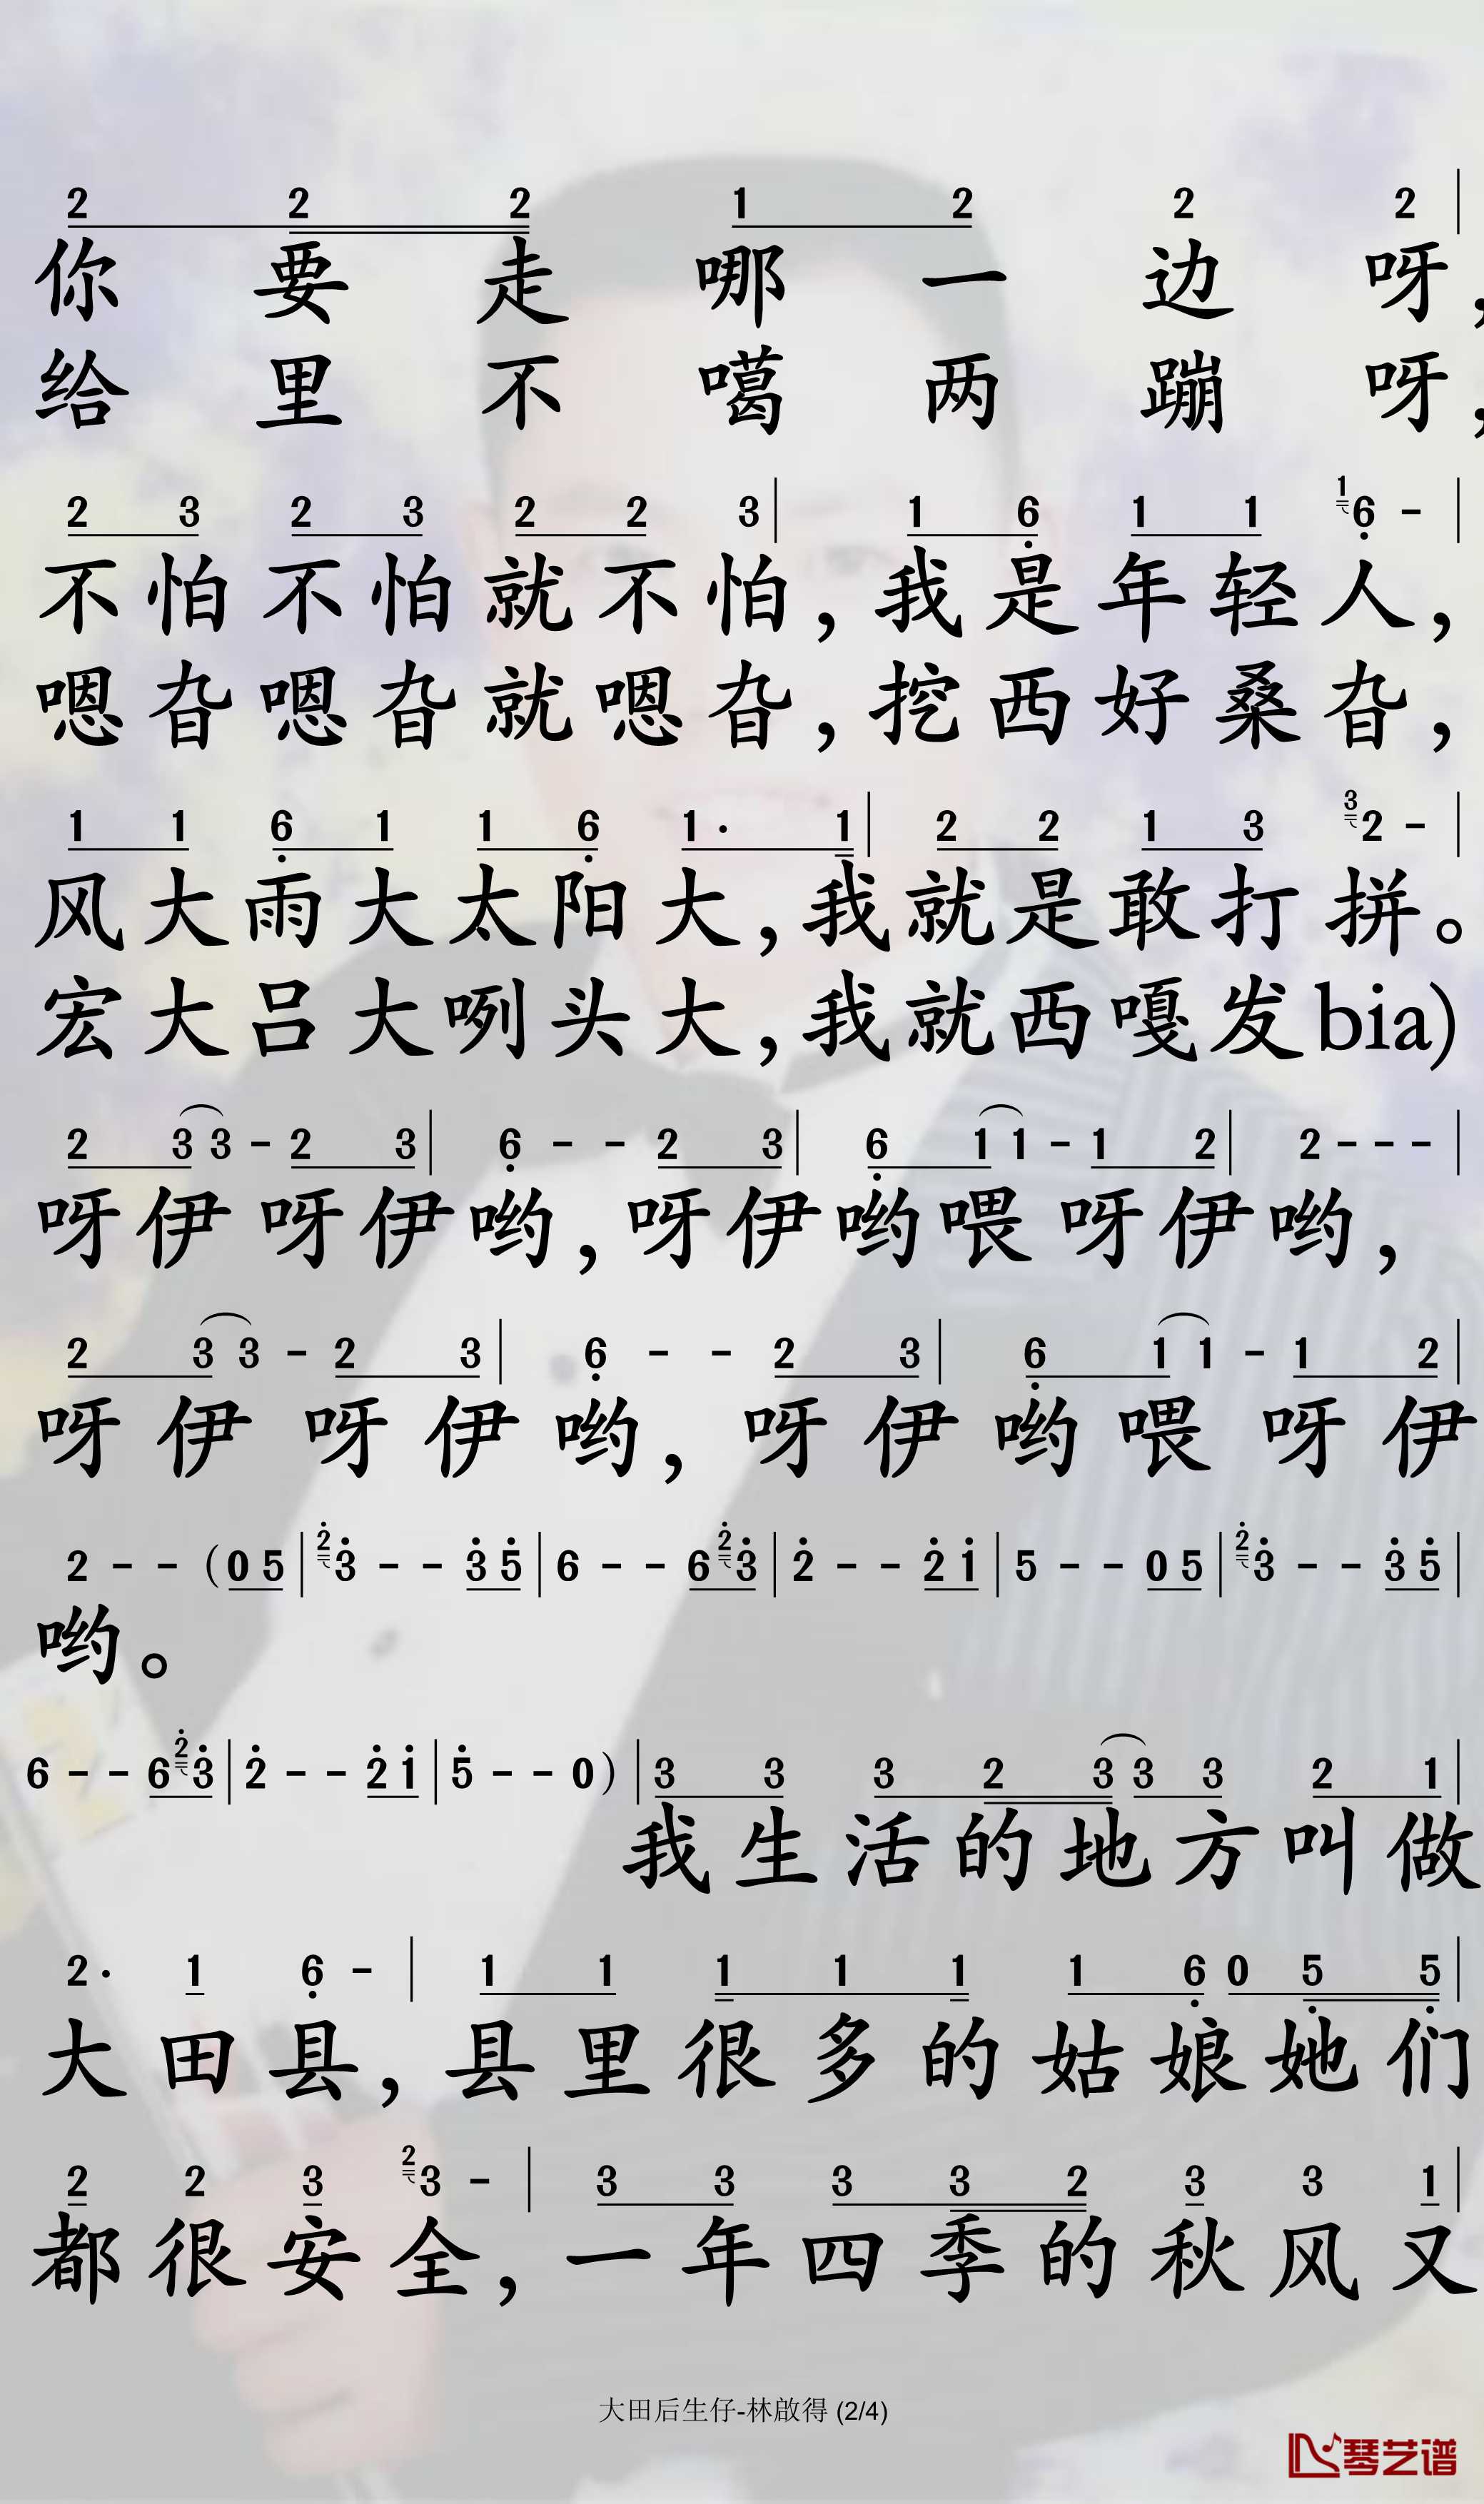 2 2 2 1 2 2 2 |
你要走哪一边呀，
给里不噶两蹦呀，
2 3 2 3 2 2 3 | 1 6 1 1 1 6 - |
不怕不怕就不怕，我是年轻人，
嗯旮嗯旮就嗯旮，挖西好桑旮，
1 1 6 1 1 6 1· 1 | 2 2 1 3 3 2 - |
风大雨大太阳大，我就是敢打拼。
宏大吕大咧头大，我就西嘎发bia)
2 3 3 - 2 3 | 6 - - 2 3 | 6 1 1 - 1 2 | 2 - - - |
呀伊呀伊哟，呀伊哟喂呀伊哟，
2 3 3 - 2 3 | 6 - - 2 3 | 6 1 1 - 1 2 |
呀伊呀伊哟，呀伊哟喂呀伊
2 - - (0 5 | 2 3 - - 3 5 | 6 - - 6 2 3 | 2 - - 2 1 | 5 - - 0 5 | 2 3 - - 3 5 |
哟。
6 - - 6 2 3 | 2 - - 2 1 | 5 - - 0) | 3 3 3 2 3 3 3 2 1 |
我生活的地方叫做
2· 1 6 - | 1 1 1 1 1 1 6 0 5 5 |
大田县，县里很多的姑娘她们
2 2 3 2 3 - | 3 3 3 3 2 3 3 1 |
都很安全，一年四季的秋风又
大田后生仔-林啟得 (2/4)
琴艺谱